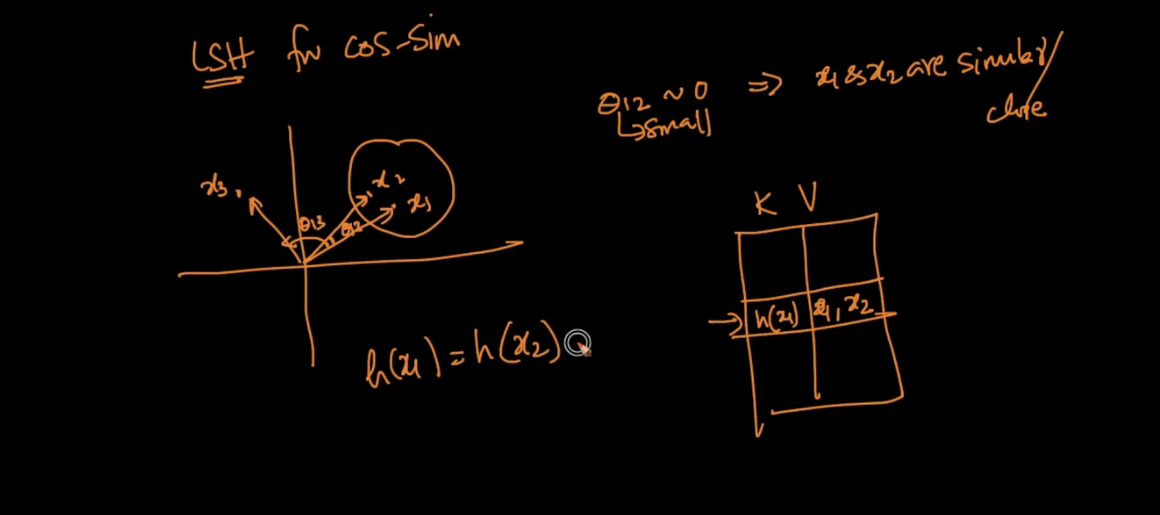 LSH for cos-sim
θ12 ~ 0 ⇒ x1 & x2 are similar/
↳small close
x3
x2
x1
θ13
θ12
K V
h(x1) x1, x2
h(x1) = h(x2)